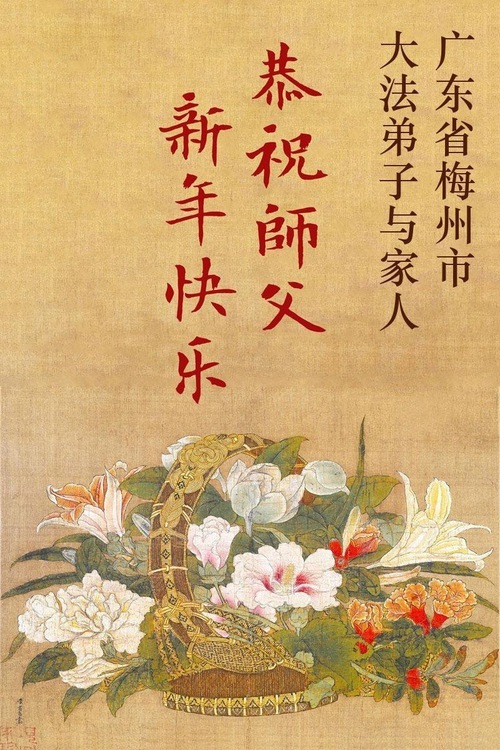 广东省梅州市
大法弟子与家人
恭祝師父
新年快乐